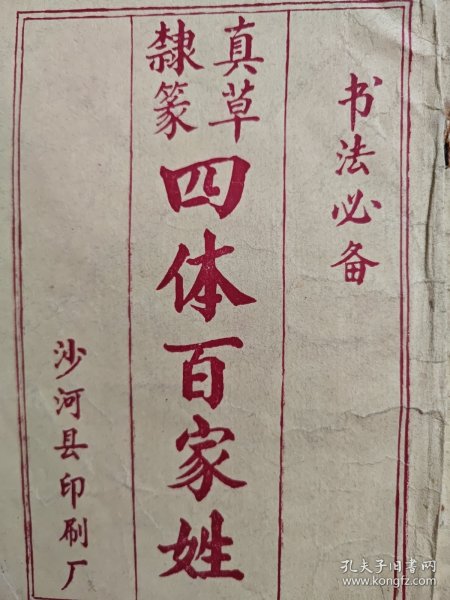 书法必备
真草
隸篆
四体百家姓
沙河县印刷厂
孔夫子旧书网
www.kongfz.com